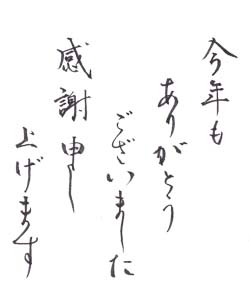 今年も
ありがとう
ございました
感謝申し
上げます